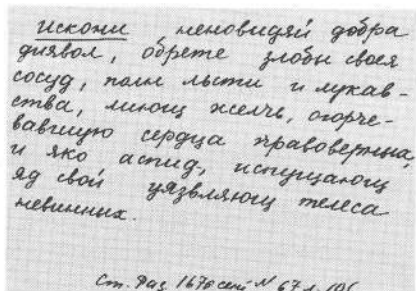 искони неновидяй добра
диявол, обрете злобы своея
сосуд, полн льсти и лукав-
ства, лиющ желчь, огорче-
вавшую сердца правоверных,
и яко аспид, испущающ
яд свой уязвляющ телеса
невинных.
Ст. Раз. 1670 № 67 л.